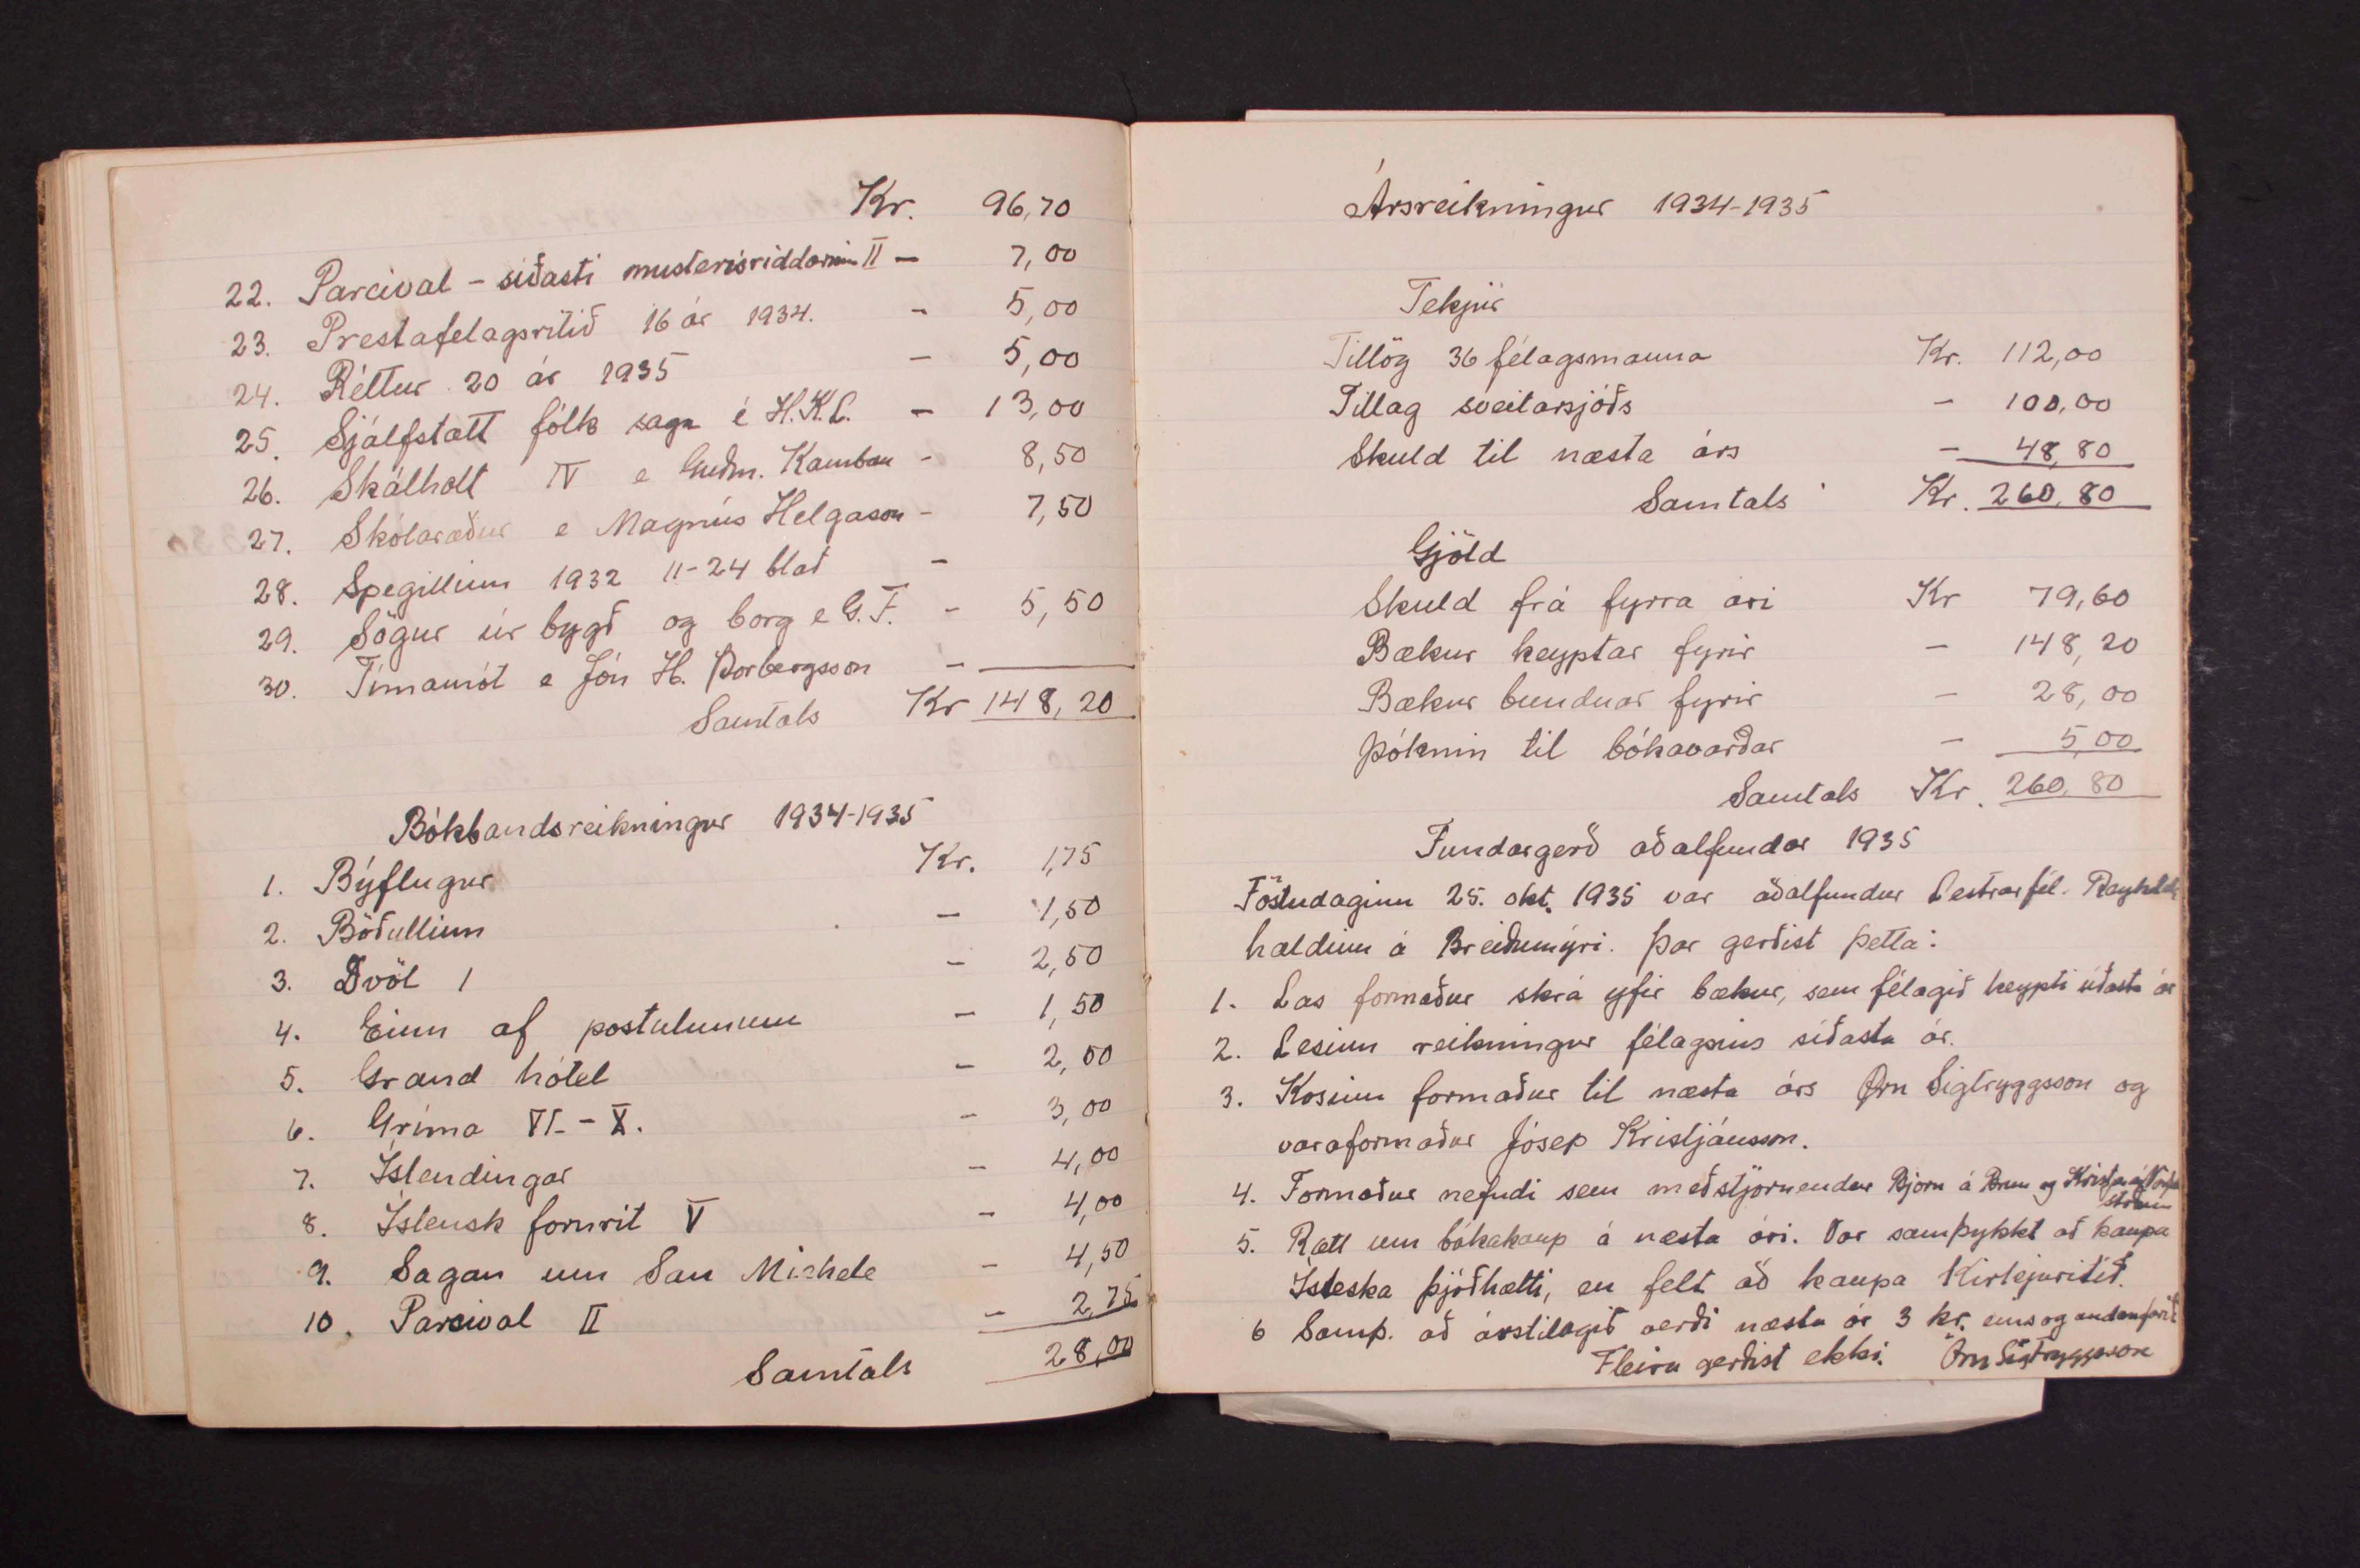 Kr. 96,70
22. Parcival - síðasti musterisriddarinn II - 7,00
23. Prestafelagsritið 16 ár 1934. - 5,00
24. Réttur 20 ár 1935 - 5,00
25. Sjálfstætt fólk saga é H.K.L. - 13,00
26. Skálholt IV e Guðm. Kamban - 8,50
27. Skólaræður e Magnús Helgason - 7,50
28. Spegillinn 1932 11-24 blað -
29. Sögur úr bygð og borg e G.F. - 5,50
30. Tímamót e Jón H. Þorbergsson -
Samtals Kr 148,20
Bókbandsreikningur 1934-1935
1. Býflugur Kr. 1,75
2. Böðullinn - 1,50
3. Dvöl 1 - 2,50
4. Einn af postulunum - 1,50
5. Grand hótel - 2,50
6. Gríma VI. - X. - 3,00
7. Íslendingar - 4,00
8. Íslensk fornrit V - 4,00
9. Sagan um San Michele - 4,50
10. Parcival II - 2,75
Samtals 28,00
Ársreikningur 1934-1935
Tekjur
Tillög 36 félagsmanna Kr. 112,00
Tillag sveitarsjóðs - 100,00
Skuld til næsta árs - 48,80
Samtals Kr. 260,80
Gjöld
Skuld frá fyrra ári Kr 79,60
Bækur keyptar fyrir - 148,20
Bækur bundnar fyrir - 28,00
Þóknun til bókavarðar - 5,00
Samtals Kr. 260,80
Fundargerð aðalfundar 1935
Föstudaginn 25. okt. 1935 var aðalfundur Lestrarfél. Reykdæla
haldinn á Breiðumýri. Þar gerðist þetta:
1. Las formaður skrá yfir bækur, sem félagið keypti síðasta ár
2. Lesinn reikningur félagsins síðasta ár.
3. Kosinn formaður til næsta árs Örn Sigtryggsson og
varaformaður Jósep Kristjánsson.
4. Formaður nefndi sem meðstjórnendur Björn á Brún og
5. Rætt um bókakaup á næsta ári. Var samþykkt að kaupa
Ísleska þjóðhætti, en felt að kaupa Kirkjuritið.
6 Samþ. að árstilagið verði næsta ár 3 kr. eins og undanfarið
Fleira gerðist ekki. Örn Sigtryggsson